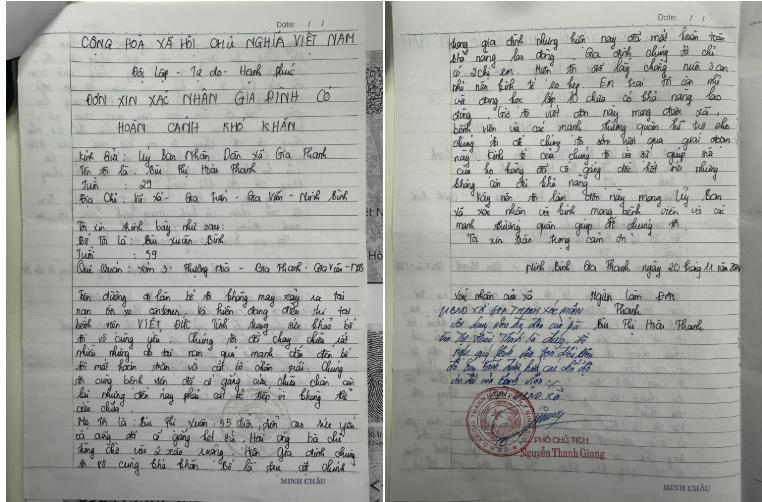 Date: / /
CỘNG HOÀ XÃ HỘI CHỦ NGHĨA VIỆT NAM
Độc Lập - Tự do - Hạnh phúc
ĐƠN XIN XÁC NHẬN GIA ĐÌNH CÓ
HOÀN CẢNH KHÓ KHĂN
Kính Gửi: Uỷ Ban Nhân Dân Xã Gia Thanh
Tên tôi là: Bùi Thị Hoài Thanh
Tuổi: 29
Địa Chỉ: - Gia - Gia Viễn - Ninh Bình
Tôi xin trình bày như sau:
Bố Tôi là: Bùi Xuân Bình
Tuổi: 59
Quê Quán: Xóm 3 - Hoà - Gia Thanh - Gia Viễn - NB
Trên đường đi làm bố tôi không may xảy ra tai
nạn ôtô xe conterner. Và hiện đang điều trị tại
bệnh viện VIỆT ĐỨC. Tình trạng sức khoẻ bố
tôi vô cùng yếu. Chúng tôi đã chạy chữa rất
nhiều nhưng do tai nạn quá mạnh dẫn đến bố
tôi mất hoàn toàn và cắt bỏ chân trái. Chúng
tôi cùng bệnh viện đã cố gắng cứu chữa chân còn
lại nhưng đến nay phải cắt bỏ tiếp vì không thể
cứu chữa.
Mẹ Tôi là: Bùi Thị Xuân: 55 tuổi, sức yếu
và cũng đã cố gắng hết sức. Hai ông bà chỉ
trông chờ vào 2 sào ruộng. Hiện gia đình chúng
tôi vô cùng khó khăn. Bố là trụ cột chính
MINH CHÂU
Date: / /
trong gia đình nhưng hiện nay đã mất hoàn toàn
khả năng lao động. Gia đình chúng tôi chỉ
có 2 chị em. Hiện tôi đã lấy chồng nuôi 3 con
nhỏ nên kinh tế eo hẹp. Em trai tôi còn nhỏ
và đang học lớp 10 chưa có khả năng lao
động. Giờ tôi viết đơn này mong được xã
bệnh viện và các mạnh thường quân hỗ trợ cho
chúng tôi để chúng tôi sớm vượt qua giai đoạn
này. Kinh tế của chúng tôi và sự giúp sức
của họ hàng đã cố gắng dốc hết sức nhưng
không còn đủ khả năng.
Vậy nên tôi làm đơn này mong Uỷ Ban
xã xác nhận và kính mong bệnh viện và các
mạnh thường quân giúp đỡ chúng tôi.
Tôi xin trân trọng cảm ơn!
Ninh Bình Gia Thanh ngày 20 tháng 11 năm
Xác nhận của xã
Người Làm Đơn
Thanh
Bùi Thị Hoài Thanh
UBND XÃ GIA THANH XÁC NHẬN
Nội dung nêu của bà
Bùi Thị Hoài Thanh là đúng. Đề
nghị
UBND XÃ
PHÓ CHỦ TỊCH
Nguyễn Thanh Giang
MINH CHÂU